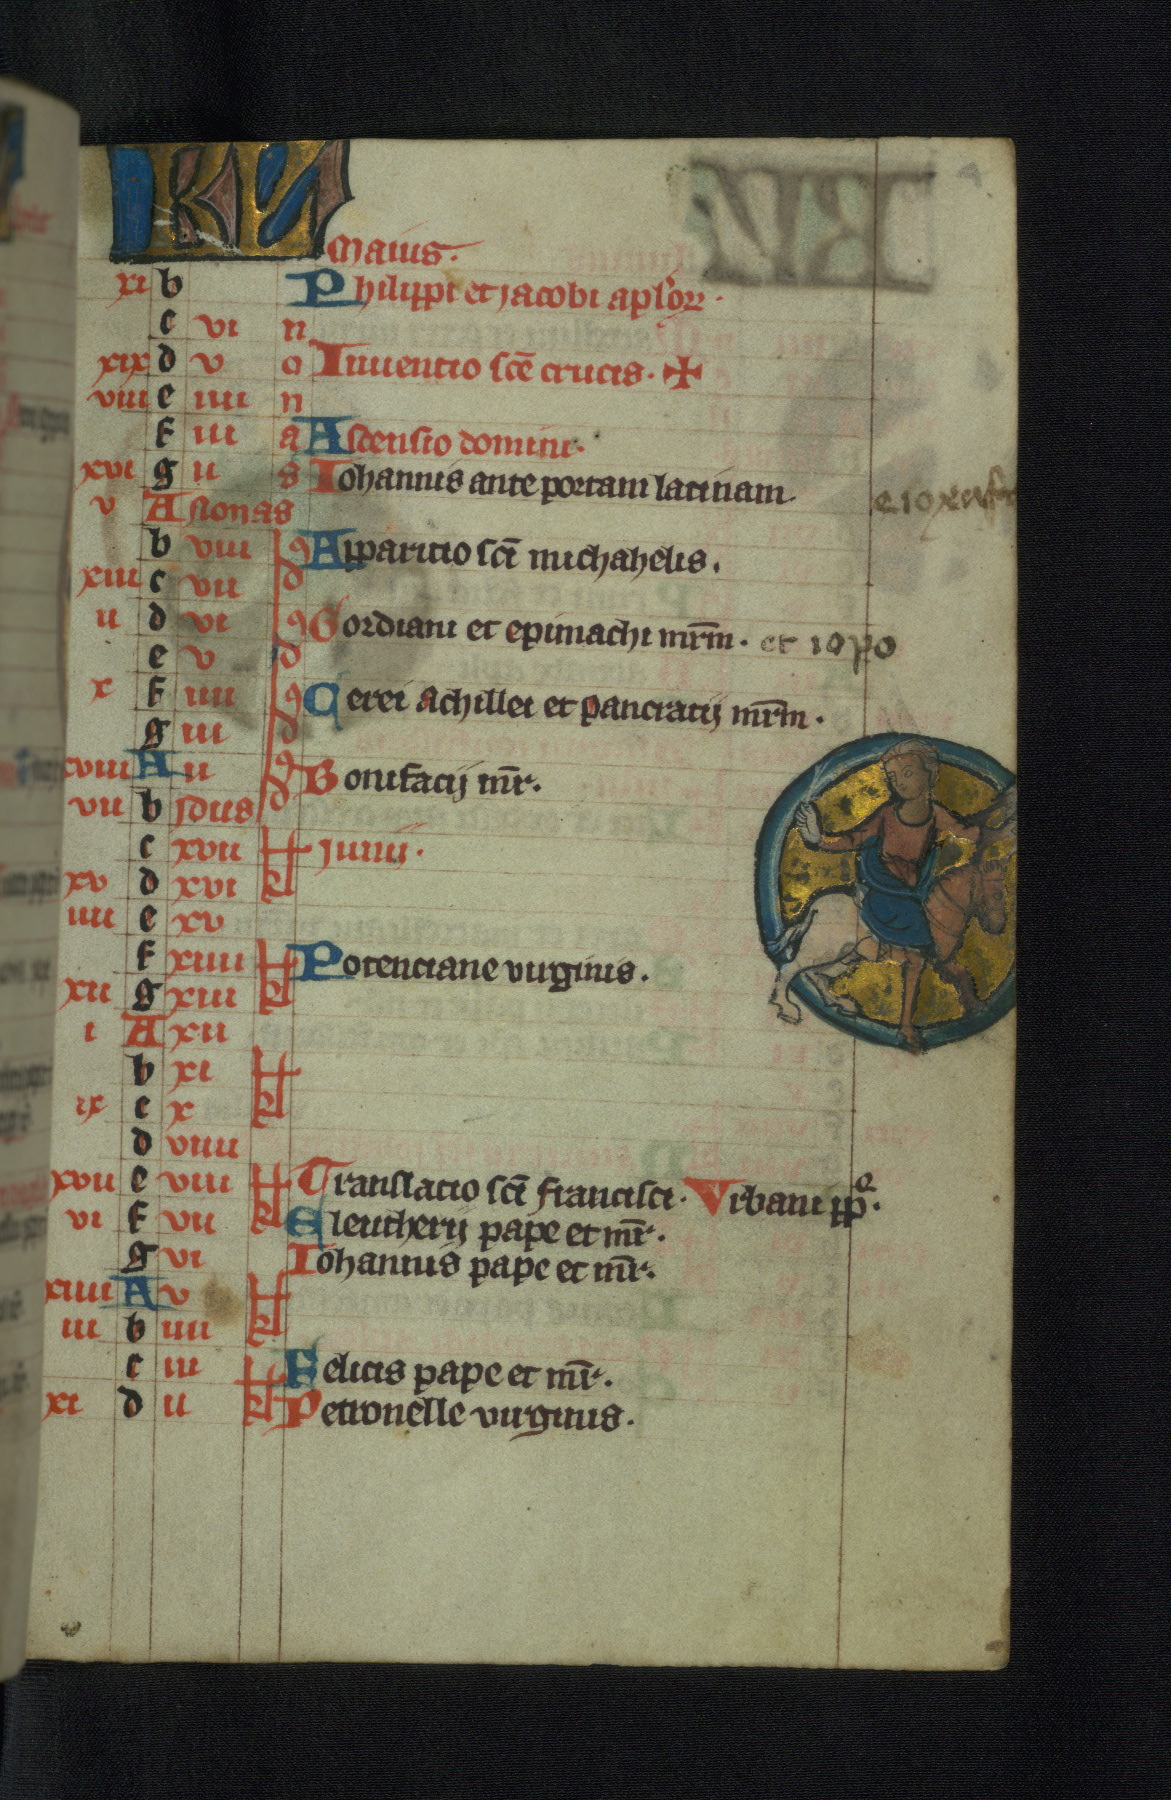 KL Maius.
xi b Philippi et jacobi aplor͛.
c vi n
xix d v o Inuentio scē crucis. ✠
viii e iiii n
f iii a Ascensio domini.
xvi g ii s Iohannis ante portam latinam.
v A nonas
b viii id9 Apparicio scī michahelis.
xiii c vii
ii d vi id9 Gordiani et epimachi mr̄m. et
e v
x f iiii id9 Cerei achillei et pancracij mr̄m.
g iii
xviii A ii id9 Bonifacij mr̄.
vii b idus
c xvii kl junij.
xv d xvi
iiii e xv
f xiiii kl Potenciane virginis.
xii g xiii
i A xii
b xi kl
ix c x
d viiii
xvii e viii kl Translatio scī francisci. Vrbani pp̄e.
vi f vii Eleutherij pape et mr̄.
g vi Iohannis pape et mr̄.
xiiii A v kl
iii b iiii
c iii kl Felicis pape et mr̄.
xi d ii Petronelle virginis.